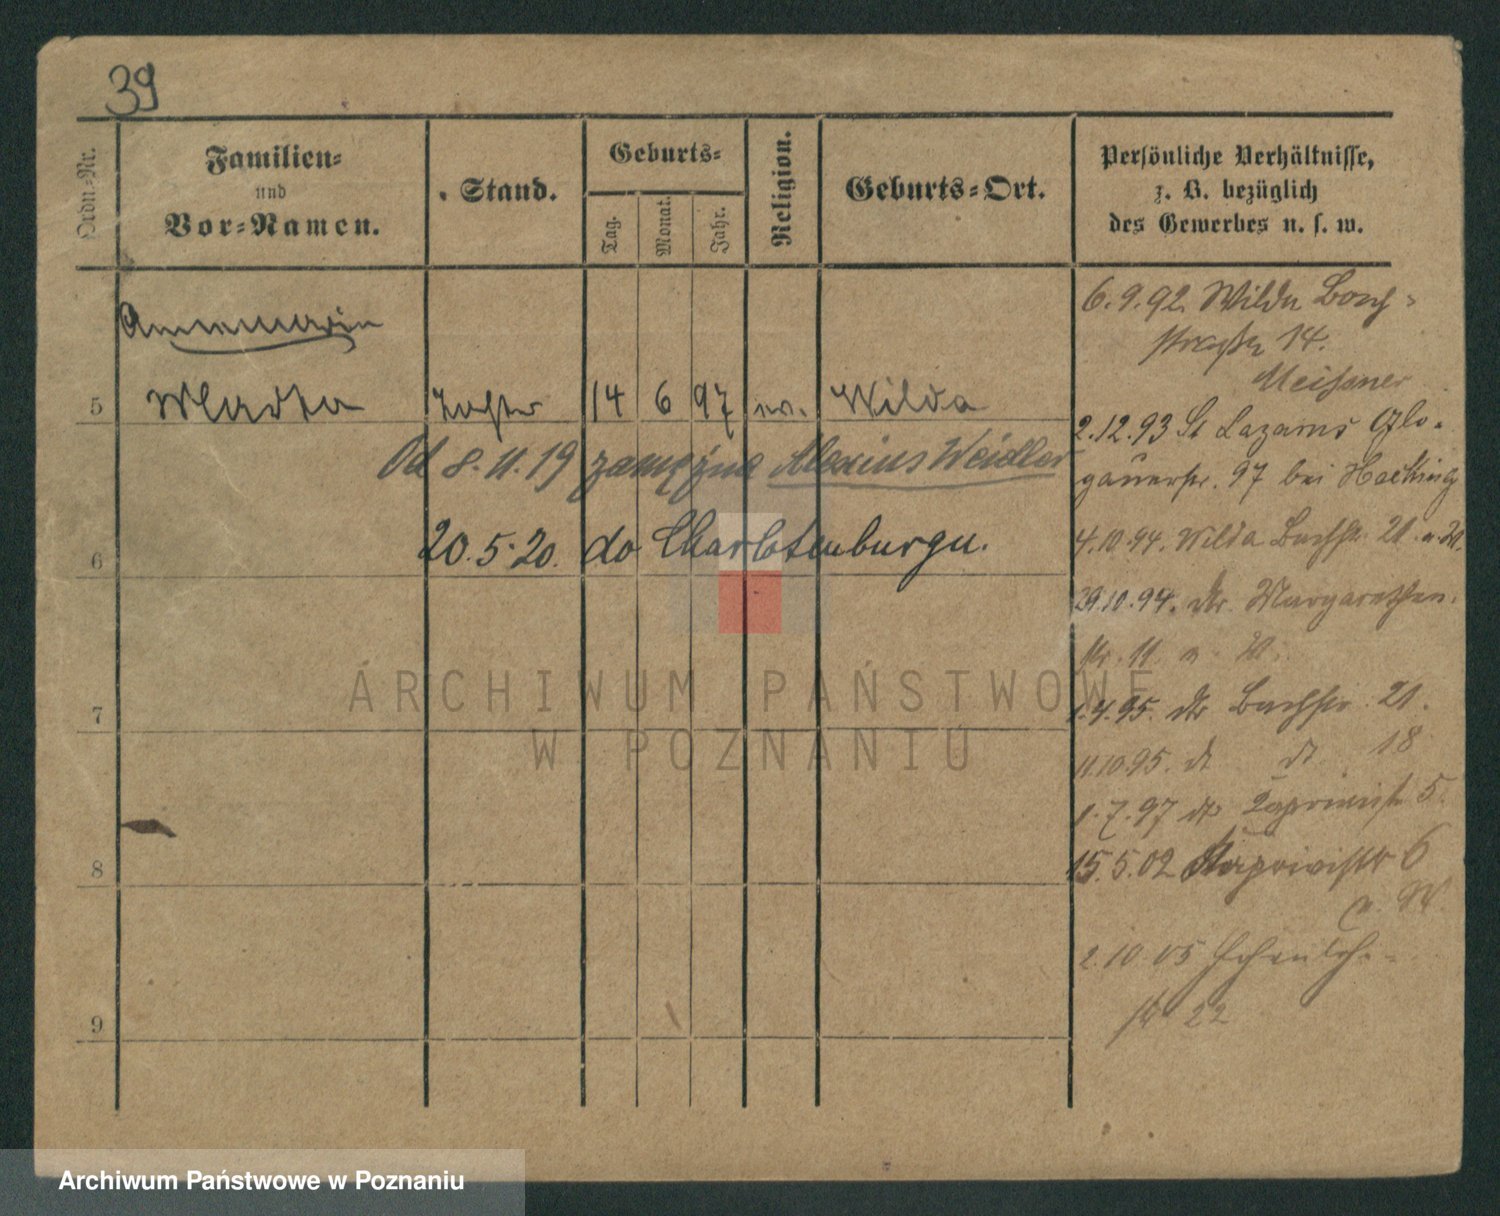 39
Ordn.-Nr.
Familien-
und
Vor-Namen.
Stand.
Geburts-
Tag.
Monat.
Jahr.
Religion.
Geburts-Ort.
Persönliche Verhältnisse,
z. B. bezüglich
des Gewerbes u. s. w.
Annemarie
5 Wladka Tochter 14 6 97 ev. Wilda
Od 8.11.19 zamężna Alexius Weidler
20.5.20. do Charlotenburgu.
6
7
8
9
6.9.92 Wilda Bach-
straße 14.
Meissner
2.12.93 St Lazarus Glo-
gauerstr. 97 bei
4.10.94. Wilda Bachstr. 21
29.10.94. Margarethen-
str. 11
1.4.95. Bachstr. 21.
11.10.95. dt dt 18
1.7.97 5
15.5.02 Kaprivistr 6
2.10.05
str 22
ARCHIWUM PAŃSTWOWE
W POZNANIU
Archiwum Państwowe w Poznaniu